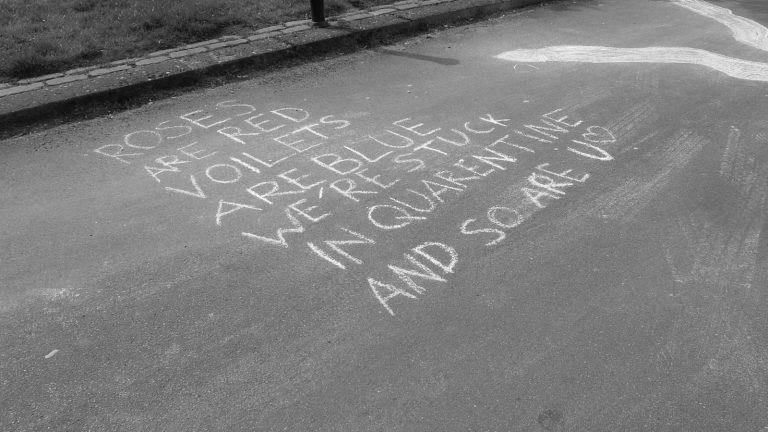 ROSES
ARE RED
VOILETS
ARE BLUE
WE'RE STUCK
IN QUARENTINE
AND SO ARE U